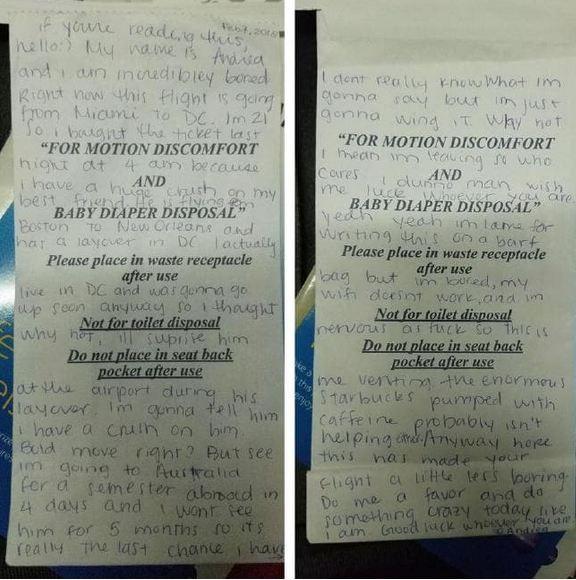 Feb 7, 2015
if youre reading this,
hello:) My name is Andrea
and i am incredibley bored
Right now this flight is going
from Miami to DC. Im 21
so i baught the ticket last
"FOR MOTION DISCOMFORT
night at 4 am because
AND
i have a huge crush on my
best friend. He is flying from
BABY DIAPER DISPOSAL"
Boston to New Orleans and
has a layover in DC I actually
Please place in waste receptacle
after use
live in DC and was gonna go
up soon anyway so i thought
Not for toilet disposal
why not, ill suprise him
Do not place in seat back
pocket after use
at the airport during his
layover. Im gonna tell him
i have a crush on him.
Bold move right? But see
im going to Australia
for a semester abroad in
4 days and i wont see
him for 5 months so its
really the last chance i have
I dont really know what im
gonna say but im just
gonna wing it. Why not
"FOR MOTION DISCOMFORT
I mean im leaving so who
AND
cares. i dunno man wish
me luck whoever you are.
BABY DIAPER DISPOSAL"
yeah yeah im lame for
writing this on a barf
Please place in waste receptacle
after use
bag but im bored, my
wifi doesnt work, and im
Not for toilet disposal
nervous as fuck so this is
Do not place in seat back
pocket after use
me venting. the enormous
Starbucks pumped with
caffeine probably isn't
helping either. Anyway hope
this has made your
flight a little less boring.
Do me a favor and do
something crazy today like
i am. Good luck whoever you are.
Andrea